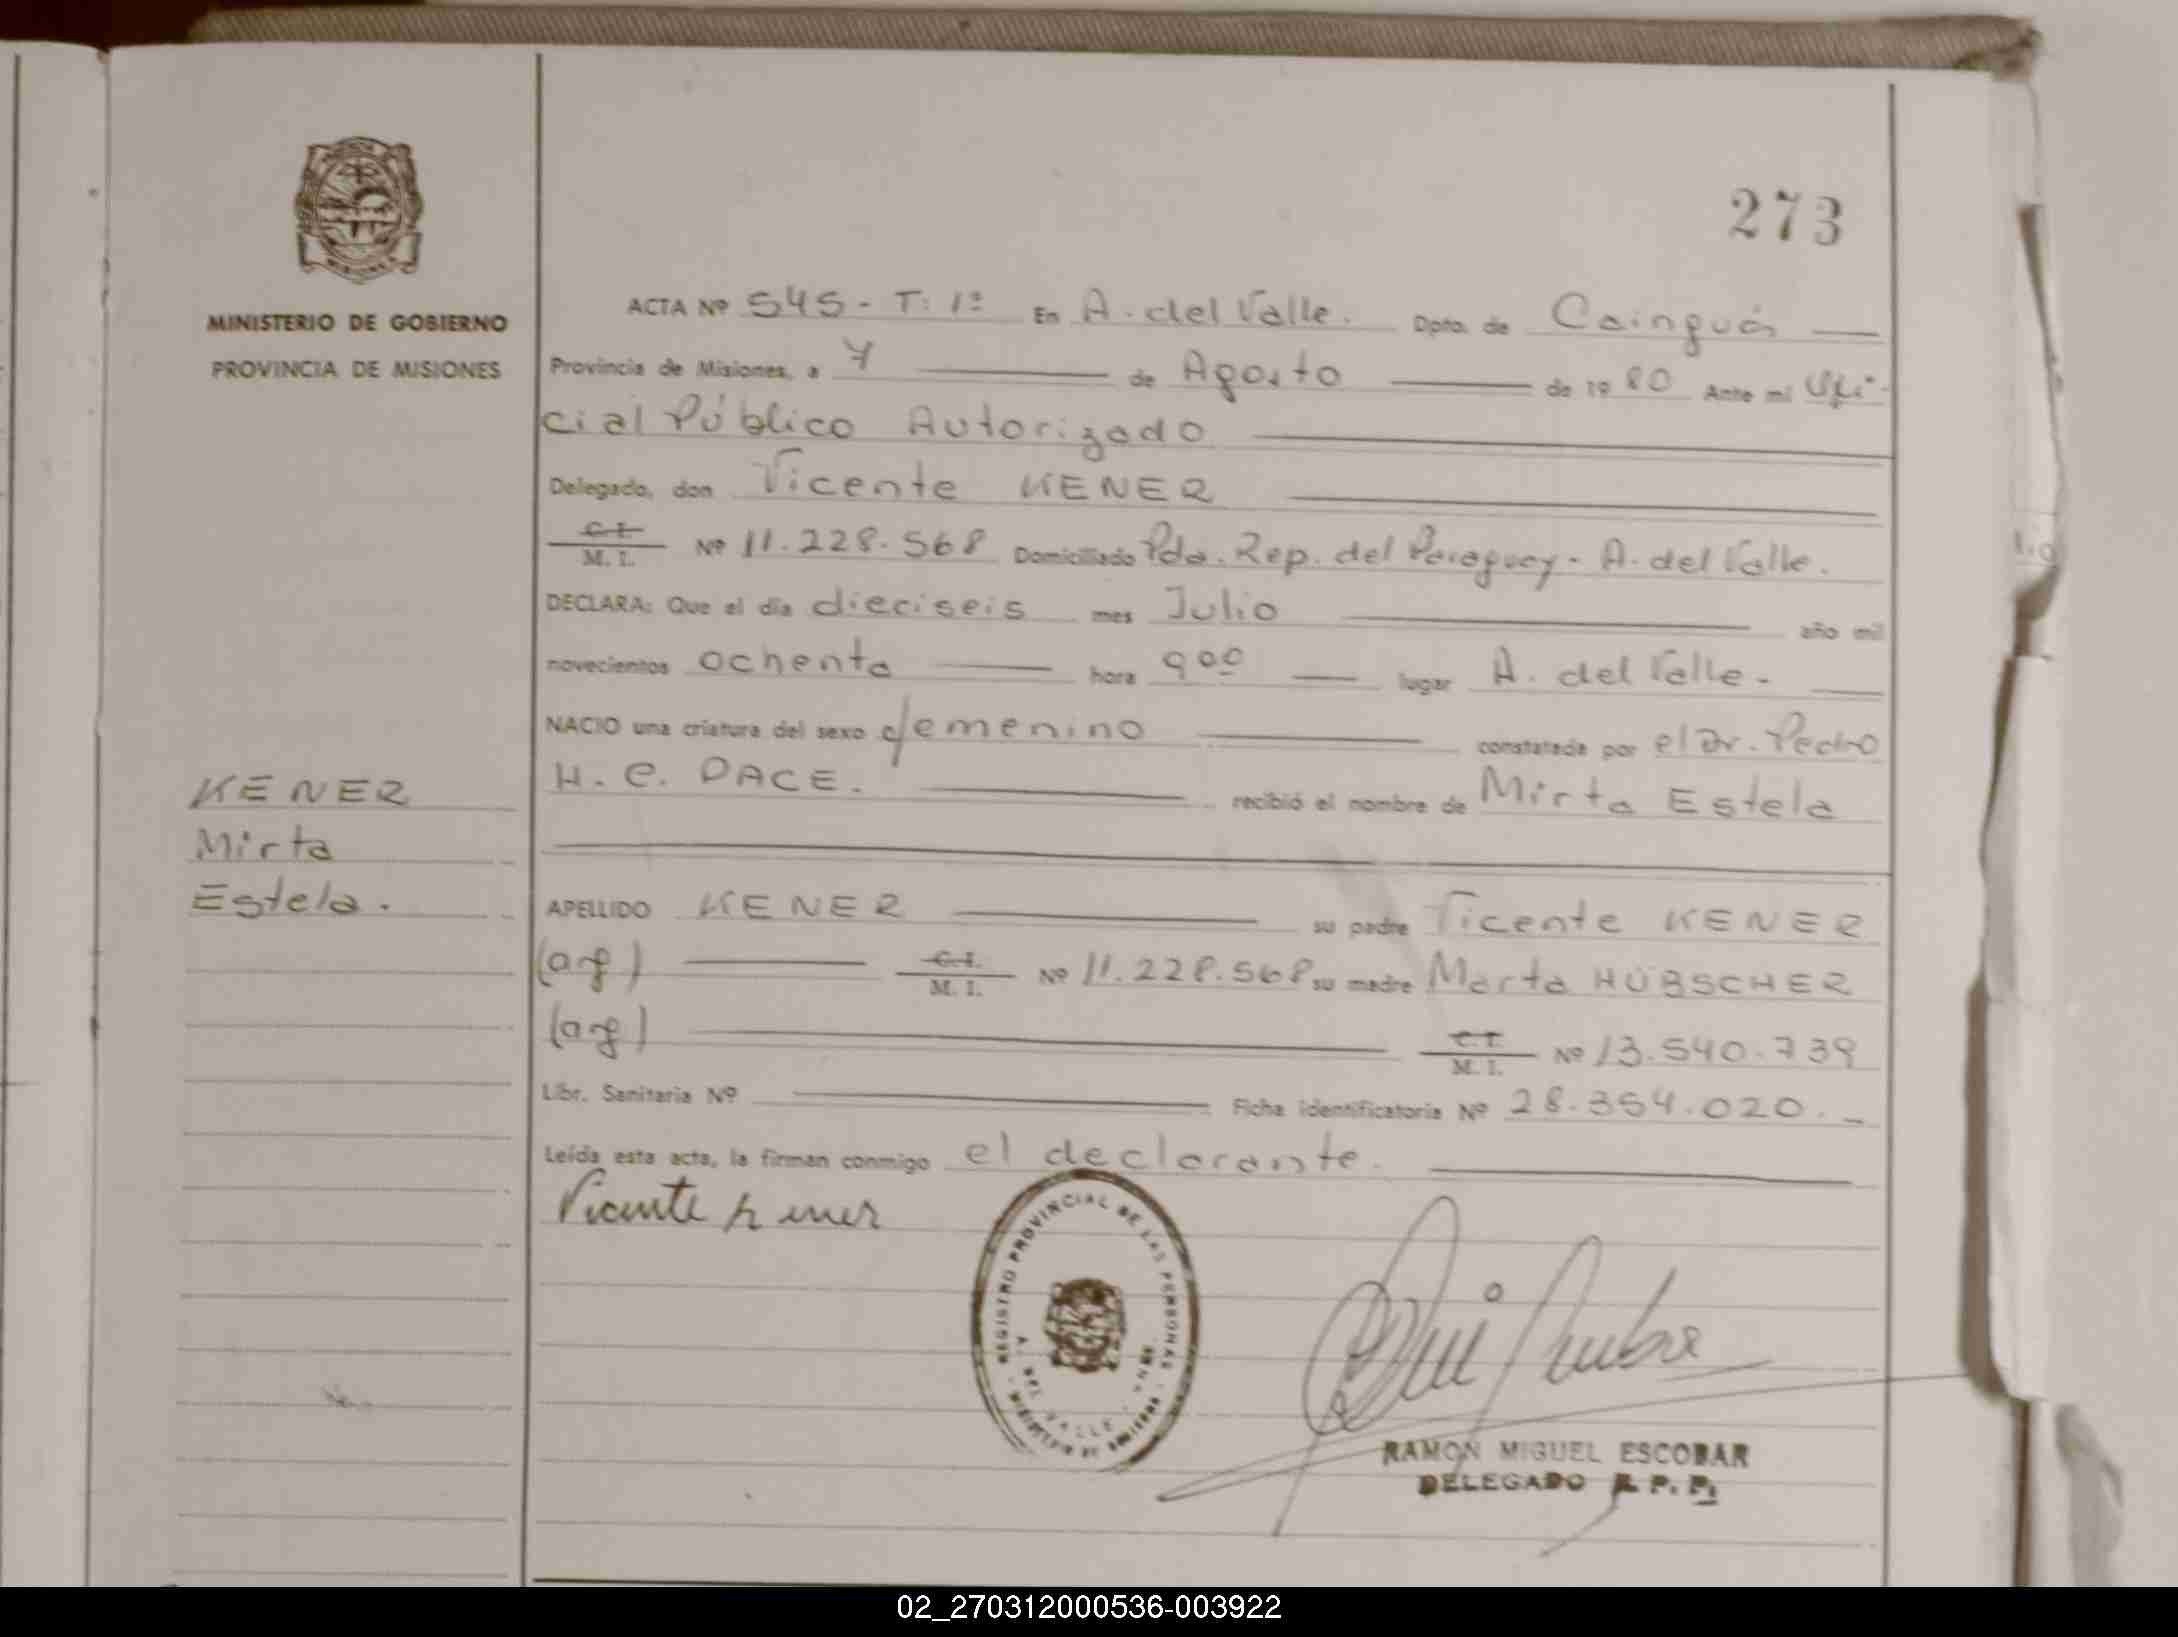 273
MINISTERIO DE GOBIERNO
PROVINCIA DE MISIONES
KENER
Mirta
Estela.
ACTA Nº 545 - T: 1º En A. del Valle. Dpto. de Cainguás
Provincia de Misiones, a 7 de Agosto de 1980 Ante mi Ofi-
cial Público Autorizado
Delegado, don Vicente KENER
C.I. / M. I. Nº 11.228.568 Domiciliado Pda. Rep. del Paraguay - A. del Valle.
DECLARA: Que el día dieciseis mes Julio año mil
novecientos ochenta hora 9 00 lugar A. del Valle -
NACIO una criatura del sexo femenino constatada por el Dr. Pedro
H. C. DACE. recibió el nombre de Mirta Estela
APELLIDO KENER su padre Vicente KENER
(arg) C.I. / M. I. Nº 11.228.568 su madre Marta HÜBSCHER
(arg) C.I. / M. I. Nº 13.540.739
Libr. Sanitaria Nº Ficha identificatoria Nº 28.354.020. -
Leída esta acta, la firman conmigo el declarante.
Vicente Kener
REGISTRO PROVINCIAL DE LAS PERSONAS
A. DEL VALLE
RAMON MIGUEL ESCOBAR
DELEGADO R. P. P.
02_270312000536-003922